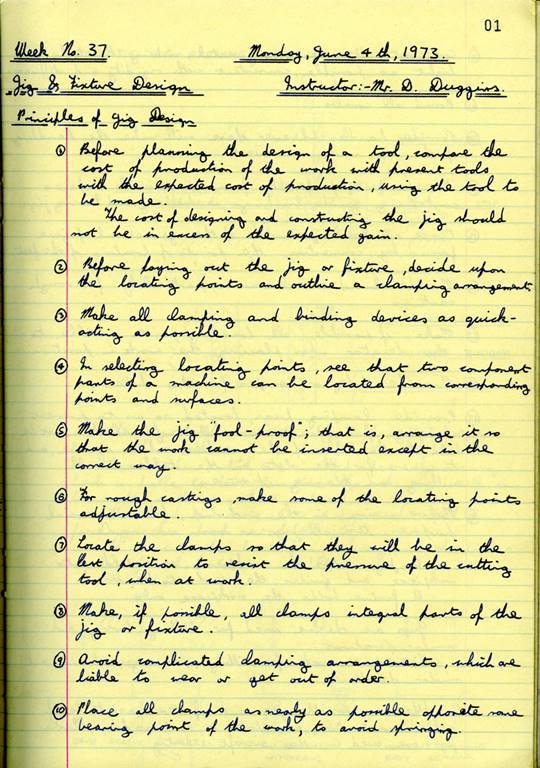 01
Week No. 37. Monday, June 4th, 1973.
Jig & Fixture Design Instructor:- Mr. D. Duggins.
Principles of Jig Design
① Before planning the design of a tool, compare the
cost of production of the work with present tools
with the expected cost of production, using the tool to
be made.
The cost of designing and constructing the jig should
not be in excess of the expected gain.
② Before laying out the jig or fixture, decide upon
the locating points and outline a clamping arrangement
③ Make all clamping and binding devices as quick-
acting as possible.
④ In selecting locating points, see that two component
parts of a machine can be located from corresponding
points and surfaces.
⑤ Make the jig "fool-proof"; that is, arrange it so
that the work cannot be inserted except in the
correct way.
⑥ For rough castings, make some of the locating points
adjustable.
⑦ Locate the clamps so that they will be in the
best position to resist the pressure of the cutting
tool, when at work.
⑧ Make, if possible, all clamps integral parts of the
jig or fixture.
⑨ Avoid complicated clamping arrangements, which are
liable to wear or get out of order.
⑩ Place all clamps as nearly as possible opposite some
bearing point of the work, to avoid springing.